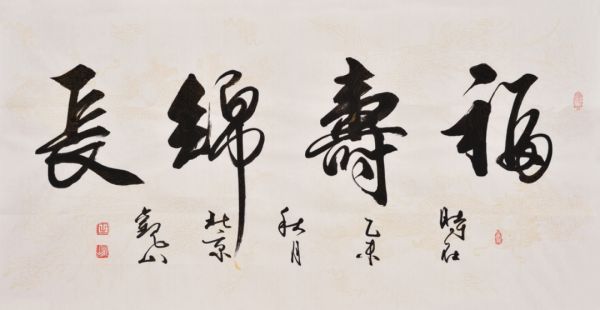 福壽綿長
時在
乙未
秋月
北京
山